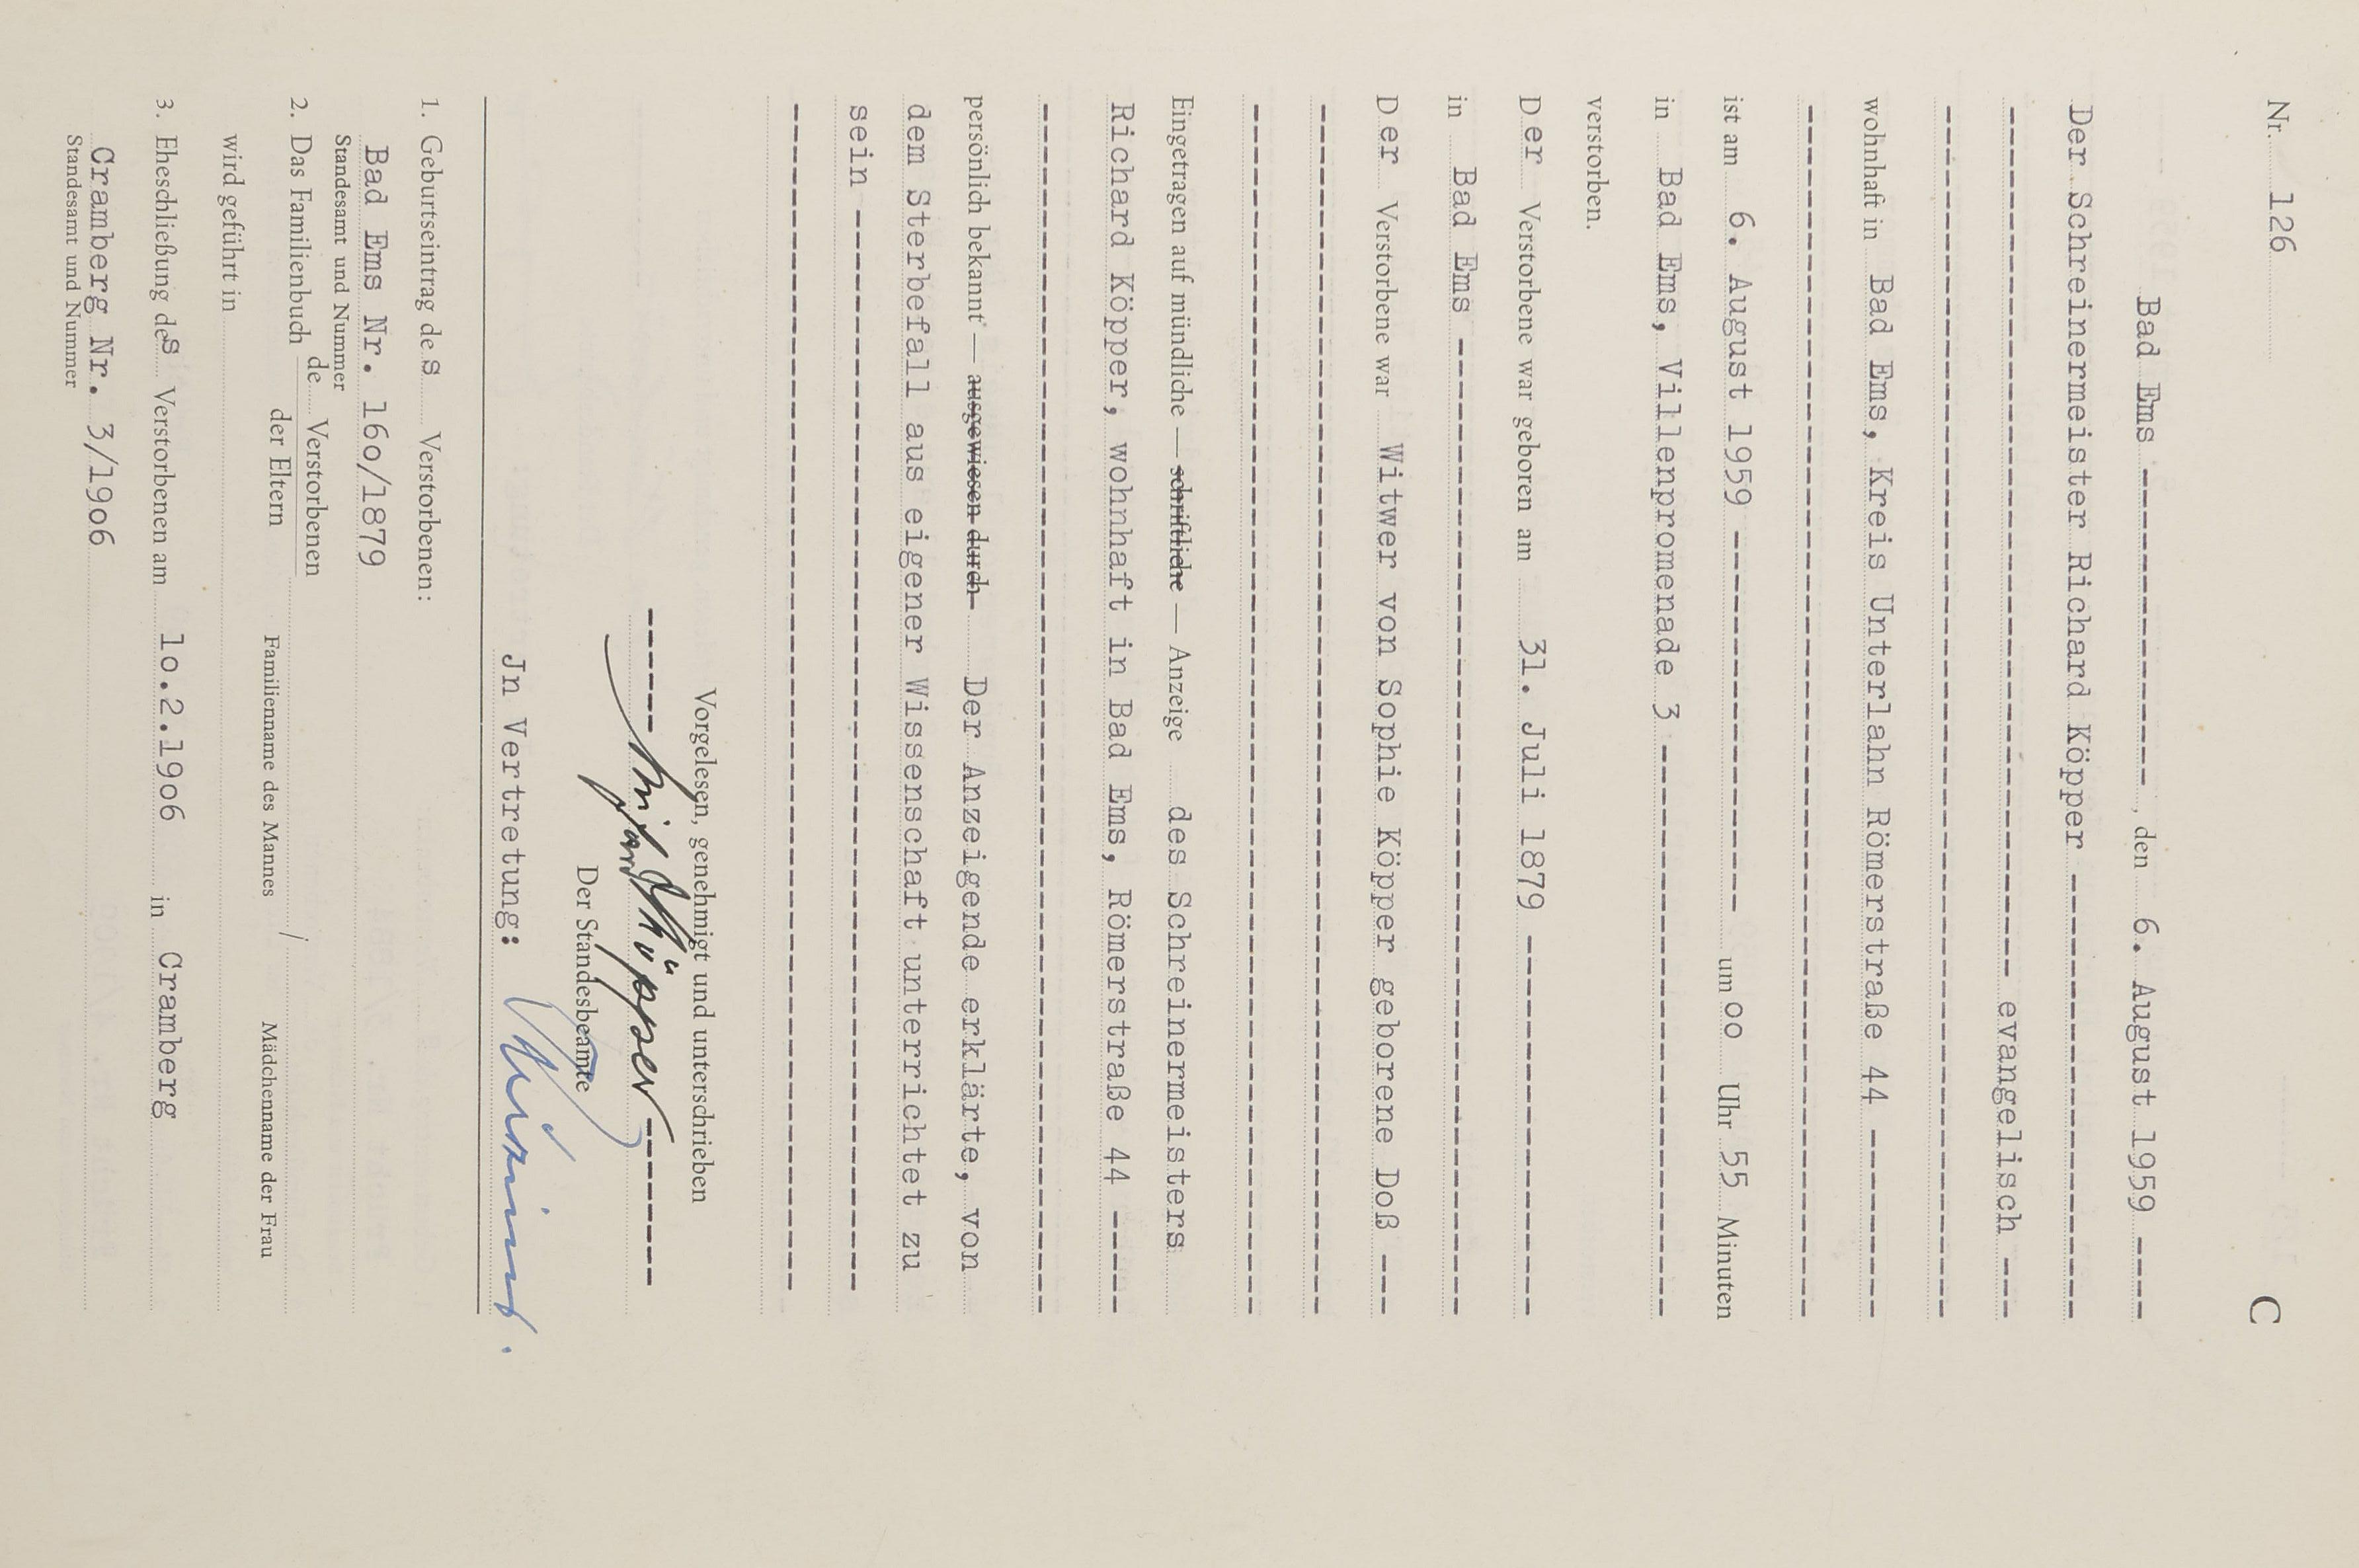 Nr. 126 C
Bad Ems ---------------, den 6. August 1959 ----
Der Schreinermeister Richard Köpper ---------------------
----------------------------------------- evangelisch ---
---------------------------------------------------------
wohnhaft in Bad Ems, Kreis Unterlahn Römerstraße 44 ---------
---------------------------------------------------------
ist am 6. August 1959 ------------------ um oo Uhr 55 Minuten
in Bad Ems, Villenpromenade 3 ---------------------------
verstorben.
Der Verstorbene war geboren am 31. Juli 1879 ------------------
in Bad Ems ----------------------------------------------
Der Verstorbene war Witwer von Sophie Köpper geborene Doß ---
---------------------------------------------------------
---------------------------------------------------------
Eingetragen auf mündliche — schriftliche — Anzeige des Schreinermeisters
Richard Köpper, wohnhaft in Bad Ems, Römerstraße 44 -----
---------------------------------------------------------
persönlich bekannt — ausgewiesen durch Der Anzeigende erklärte, von
dem Sterbefall aus eigener Wissenschaft unterrichtet zu
sein ----------------------------------------------------
---------------------------------------------------------
Vorgelesen, genehmigt und unterschrieben
------ Richard Köpper --------
Der Standesbeamte
Jn Vertretung:
1. Geburtseintrag des Verstorbenen:
Bad Ems Nr. 16o/1879
Standesamt und Nummer
2. Das Familienbuch de Verstorbenen /
der Eltern Familienname des Mannes Mädchenname der Frau
wird geführt in
3. Eheschließung des Verstorbenen am 1o.2.19o6 in Cramberg
Cramberg Nr. 3/19o6
Standesamt und Nummer